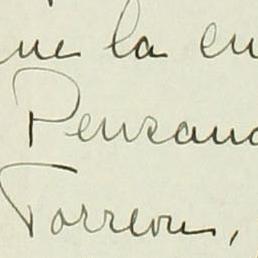 ue la en
Pensand
Torreon,